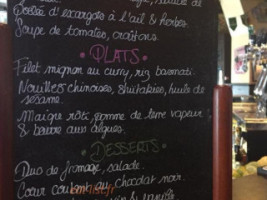 Poêlée d'escargots à l'ail & herbes.
Soupe de tomates, croûtons.
• PLATS •
Filet mignon au curry, riz basmati.
Nouilles chinoises, shiitakies, huile de
sésame.
Maigre rôti, pomme de terre vapeur
& beurre aux algues.
• DESSERTS •
Duo de fromage, salade.
Coeur coulant au chocolat noir.
& vanille